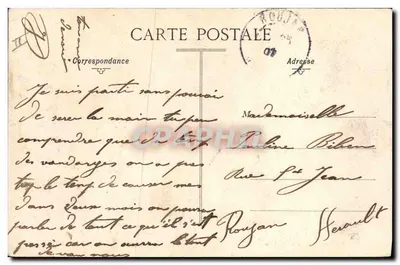 CARTE POSTALE
Correspondance
Adresse
ROUJAN
07
Je suis parti sans pouvoir
de serer la main tu peu
comprendre que de temp
des vandanges on a pas
trop le temp de causer mes
dans deux mois on poura
parler de tout ce qu'il s'est
passé car on aura le temt
Je vai nous
Mademoiselle
Pauline Biben
Rue St Jean
Roujan Herault